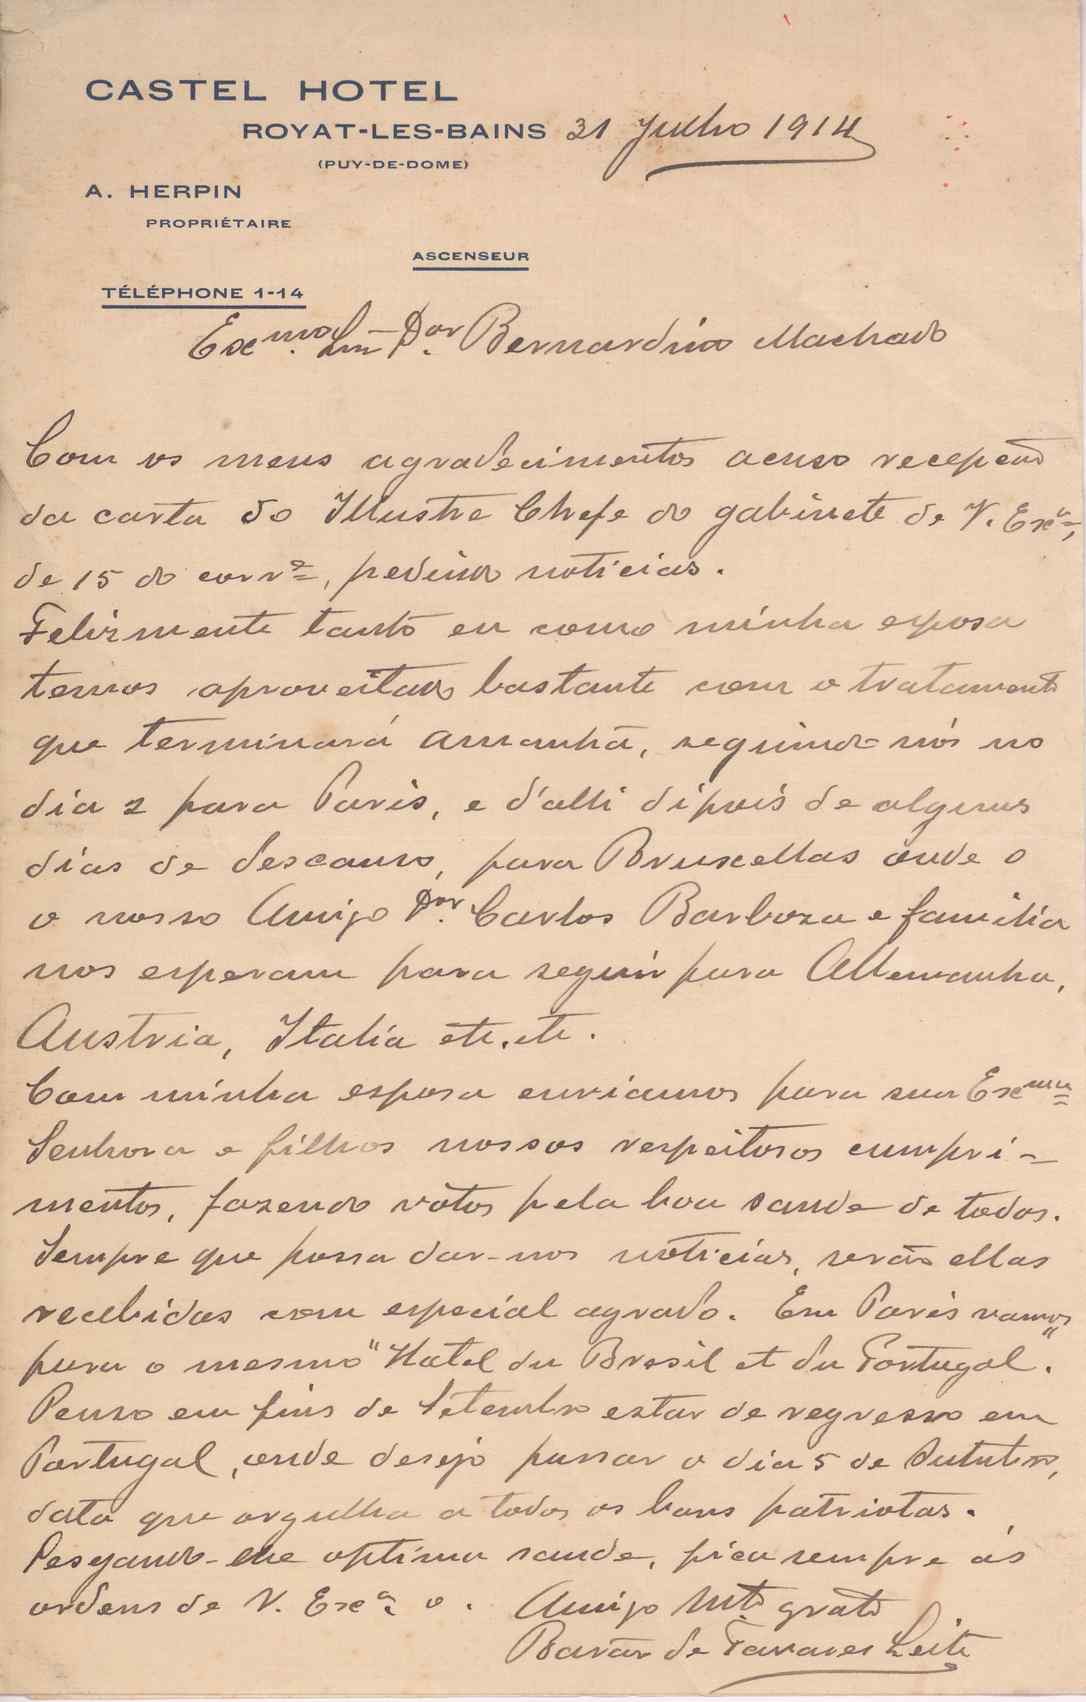 CASTEL HOTEL
ROYAT-LES-BAINS 31 Julho 1914
(PUY-DE-DOME)
A. HERPIN
PROPRIÉTAIRE
ASCENSEUR
TÉLÉPHONE 1-14
Excmo Snr Dor Bernardino Machado
Com os meus agradecimentos acuso recepção
da carta do Illustre Chefe do gabinete de V. Exca,
de 15 do corre, pedindo noticias.
Felizmente tanto eu como minha esposa
temos aproveitado bastante com o tratamento
que terminará amanhã, seguindo nós no
dia 2 para Paris, e d'alli dipois de alguns
dias de descanso, para Bruxellas onde o
o nosso Amigo Dor Carlos Barboza e familia
nos esperam para seguir para Allemanha,
Austria, Italia etc. etc.
Com minha esposa enviamos para sua Excma
Senhora e filhos nossos respeitosos cumpri-
mentos, fazendo vótos pela boa saude de todos.
Sempre que possa dar-nos noticias, serão ellas
recebidas com especial agrado. Em Paris vamos
para o mesmo "Hotel du Bresil et du Portugal".
Penso em fins de Setembro estar de regresso em
Portugal, onde desejo passar o dia 5 de Outubro,
data que orgulha a todos os bons patriotas.
Desejando-lhe optima saude, fica sempre ás
ordens de V. Exca o. Amigo Mto grato
Barão de Tavares Leite